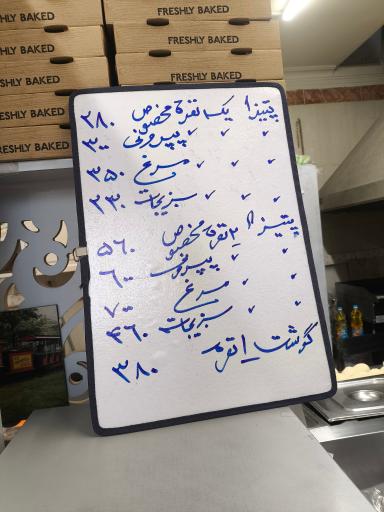 FRESHLY BAKED
FRESHLY BAKED
FRESHLY BAKED
FRESHLY BAKED
FRESHLY BAKED
FRESHLY BAKED
FRESHLY BAKED
FRESHLY BAKED
پیتزا یک نفره مخصوص ۲۸۰
〃 〃 〃 پپرونی ۳۰۰
〃 〃 〃 مرغ ۳۵۰
〃 〃 〃 سبزیجات ۲۳۰
پیتزا ۲ نفره مخصوص ۵۶۰
〃 〃 پپرونی ۶۰۰
〃 〃 مرغ ۷۰۰
〃 〃 سبزیجات ۴۶۰
گوشت ۱ نفره ۳۸۰